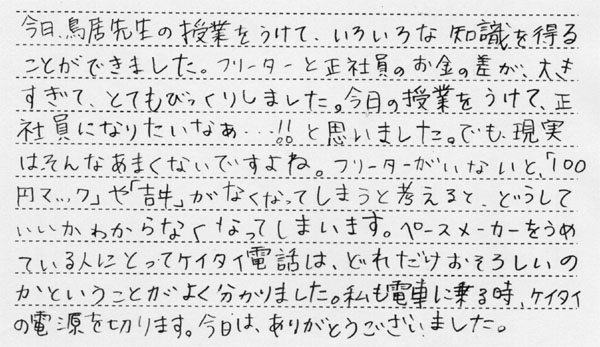 今日、鳥居先生の授業をうけて、いろいろな知識を得る
ことができました。フリーターと正社員のお金の差が、大き
すぎて、とてもびっくりしました。今日の授業をうけて、正
社員になりたいなぁ…!!と思いました。でも、現実
はそんなあまくないですよね。フリーターがいないと、「100
円マック」や「吉牛」がなくなってしまうと考えると、どうして
いいかわからなくなってしまいます。ペースメーカーをうめ
ている人にとってケイタイ電話は、どれだけおそろしいの
かということがよく分かりました。私も電車に乗る時、ケイタイ
の電源を切ります。今日は、ありがとうございました。